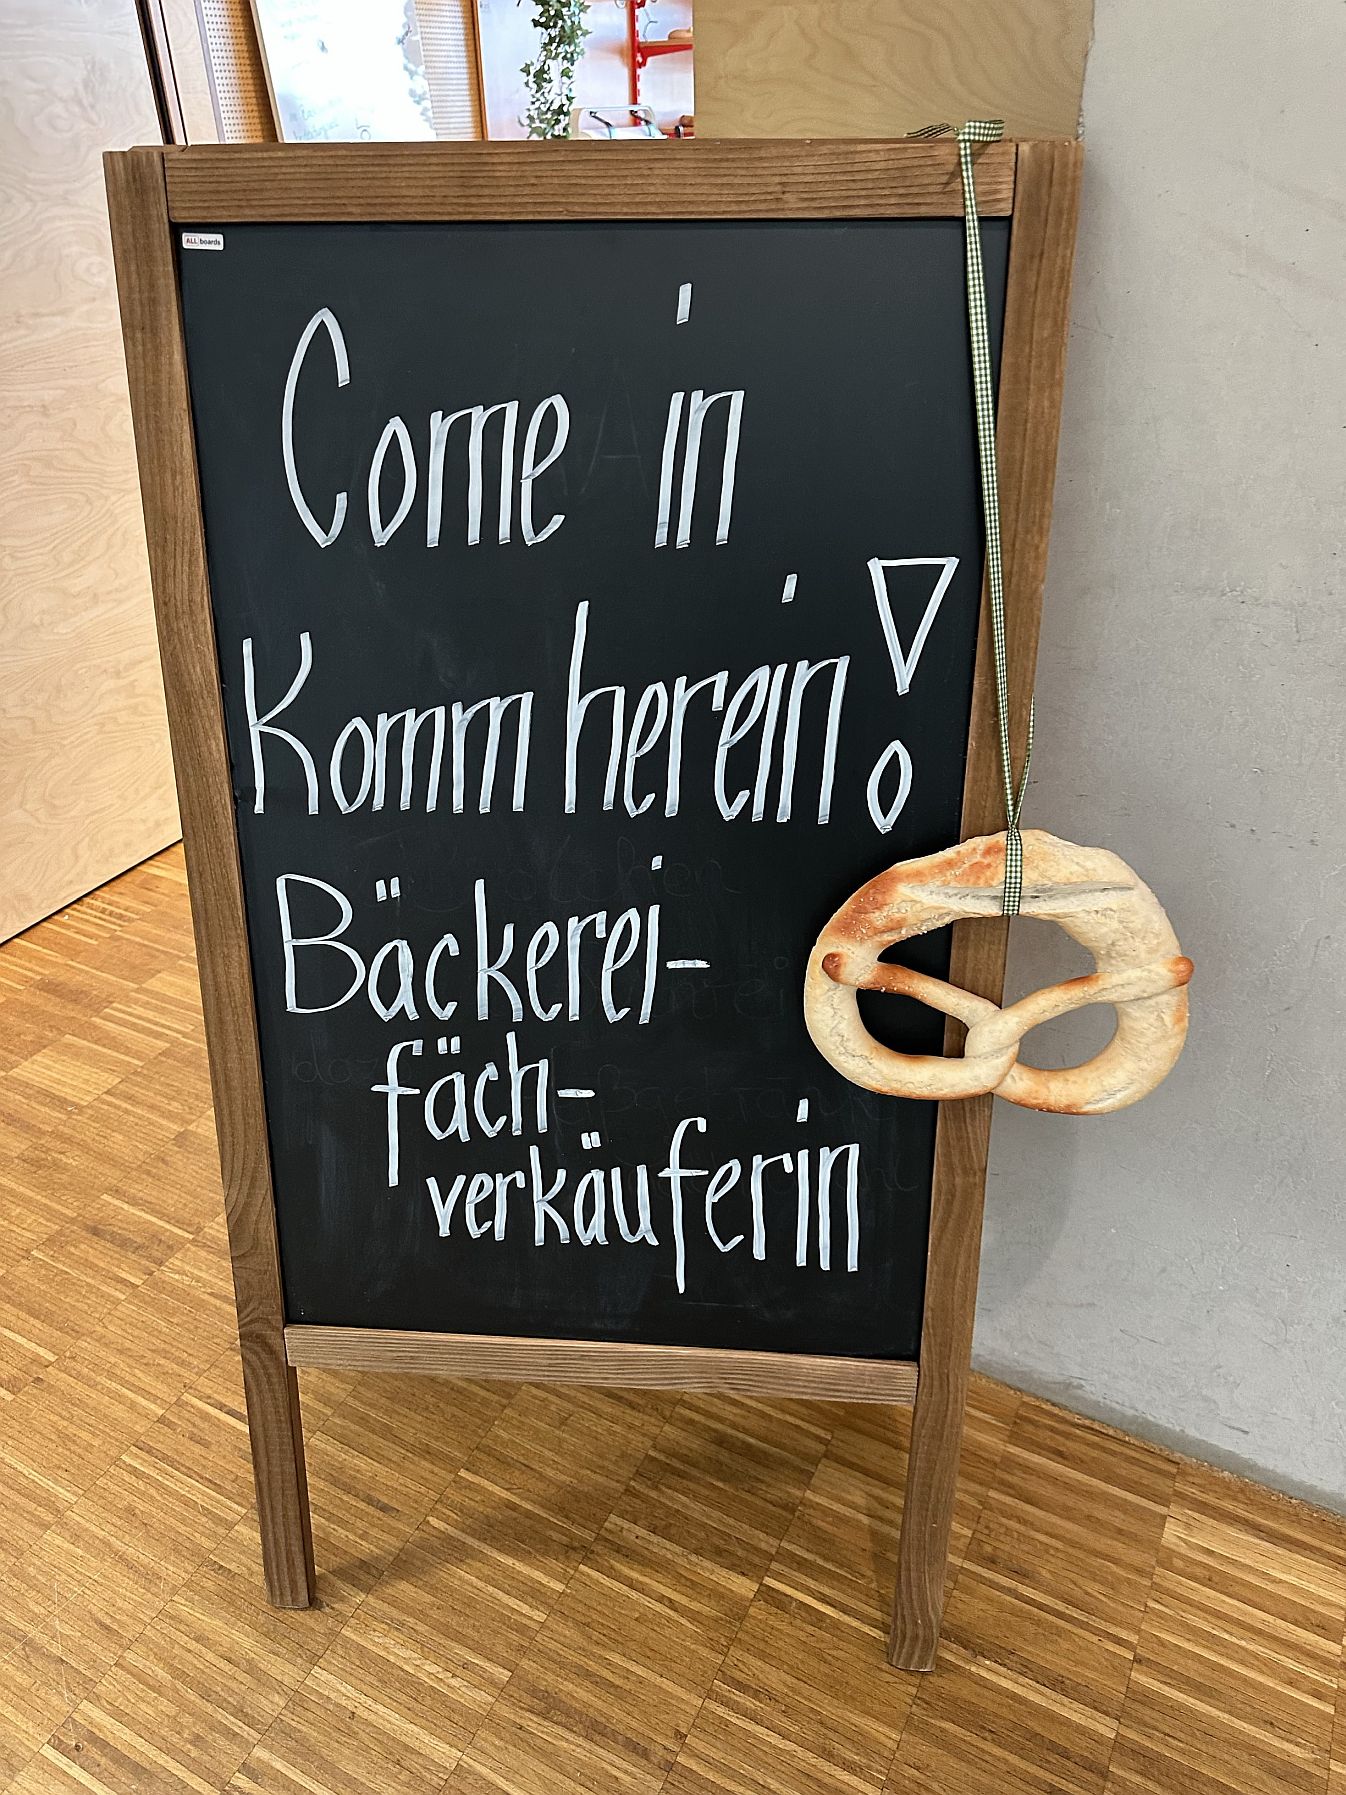 ALL boards
Come in
Komm herein!
Bäckerei-
fäch-
verkäuferin